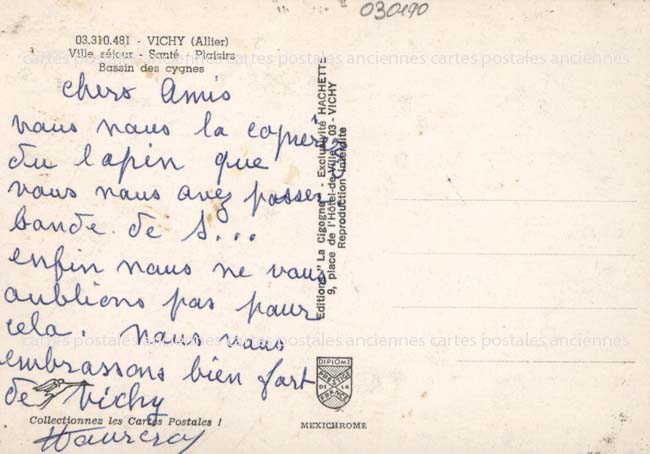 030190
03.310.481 - VICHY (Allier)
Ville séjour - Santé - Plaisirs
Bassin des cygnes
chers Amis
vous nous la copierez
du lapin que
vous nous avez passer
bande de S...
enfin nous ne vous
oublions pas pour
cela. nous vous
embrassons bien fort
de Vichy
Collectionnez les Cartes Postales !
Editions "La Cigogne" - Exclusivité HACHETTE
9, place de l'Hôtel-de-Ville, 03 - VICHY
Reproduction interdite
DIPLOME
PRESTIGE
DE LA
FRANCE
MEXICHROME
cartes postales anciennes cartes postales anciennes cartes postales anciennes
cartes postales anciennes cartes postales anciennes cartes postales anciennes